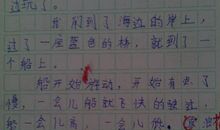 过玩了。
我们到了海边的岸上，
过了一座蓝色的桥，就到了一
个船上。
船开始启动，开始有点
慢，一会儿船就飞快的驶过，
一会儿高，一会儿低。